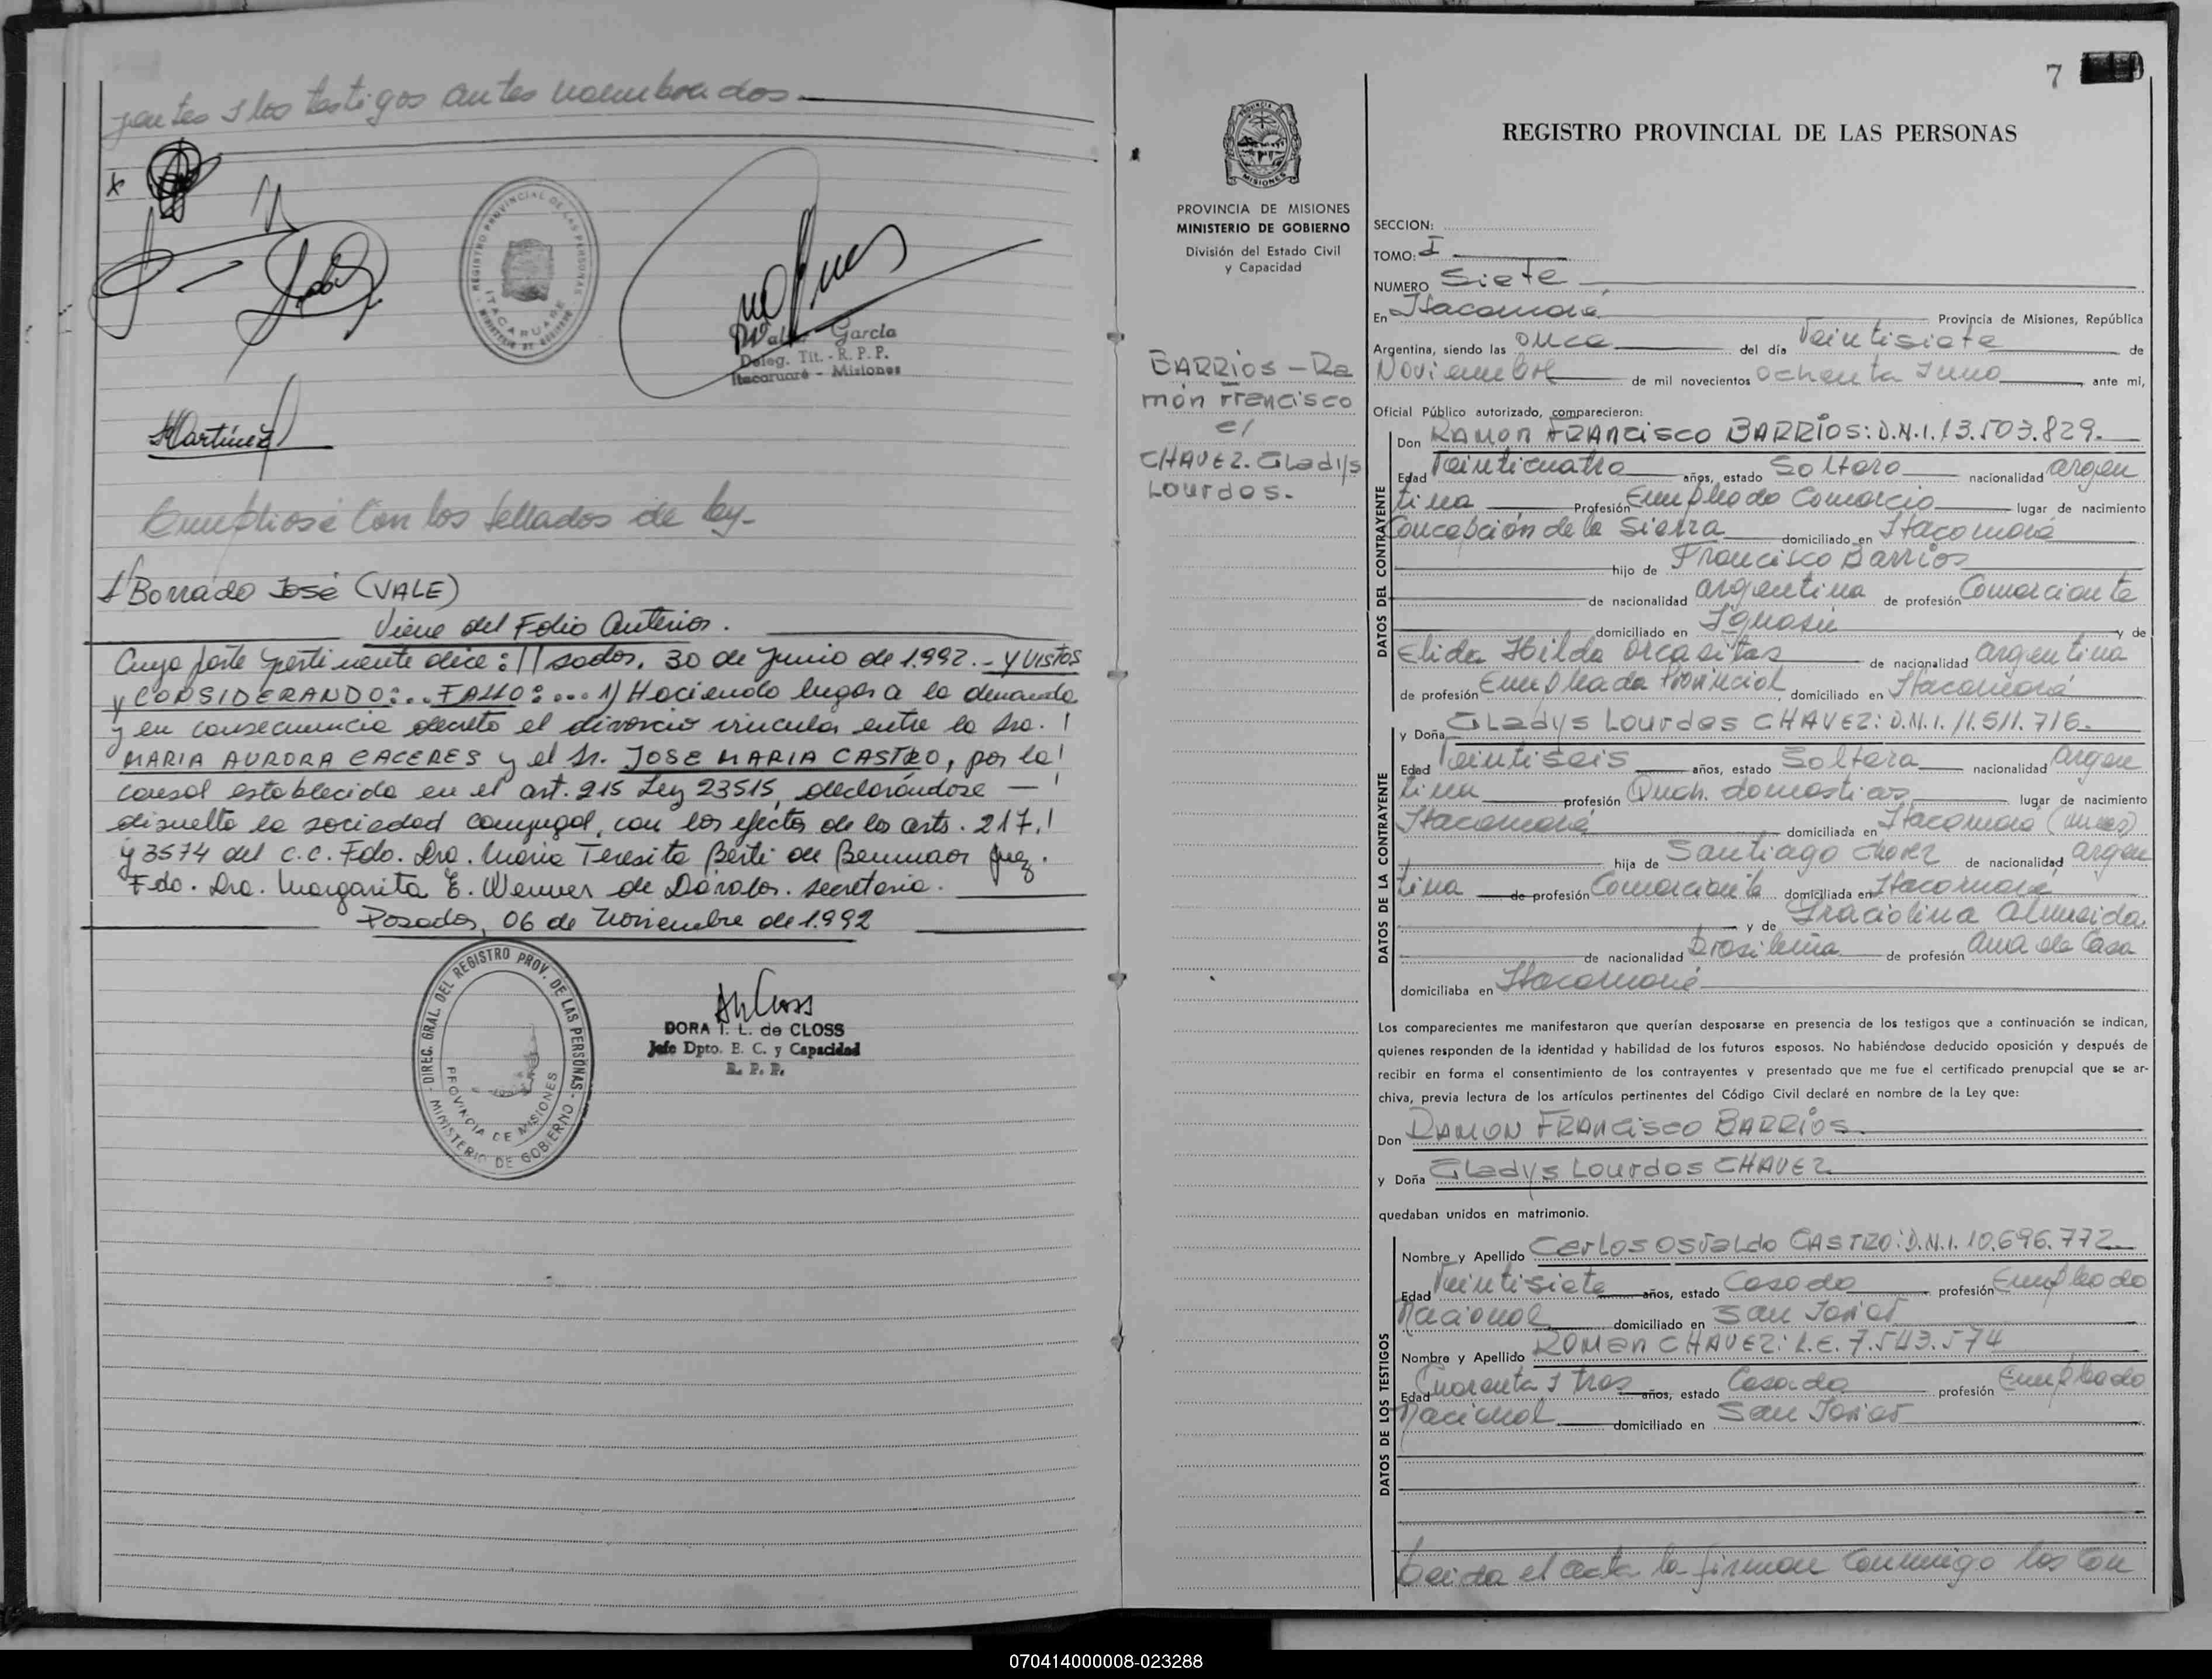 y los testigos antes nombrados.
x
REGISTRO PROVINCIAL DE LAS PERSONAS
ITACARUARE
MINISTERIO DE GOBIERNO
García
Deleg. Tit. - R. P. P.
Itacaruaré - Misiones
Martínez
Cumpliose con los sellados de ley-
Borrado José (VALE)
Viene del Folio Anterior.
Cuya parte pertinente dice: //sadas, 30 de Junio de 1.992. - Y VISTOS
y CONSIDERANDO:.. FALLO:... 1) Haciendo lugar a la demanda
y en consecuencia decreto el divorcio vincular entre la Sra.
MARIA AURORA CACERES y el Sr. JOSE MARIA CASTRO, por la
causal establecida en el art. 215 Ley 23515, declarándose —
disuelta la sociedad conyugal, con los efectos de los arts. 217,
y 3574 del C.C. Fdo. Dra. María Teresita Berti de Juez.
Fdo. Dra. Margarita E. de secretaria.
Posadas, 06 de Noviembre de 1.992
DIREC. GRAL. DEL REGISTRO PROV. DE LAS PERSONAS
PROVINCIA DE MISIONES
MINISTERIO DE GOBIERNO
DORA I. L. de CLOSS
Jefe Dpto. E. C. y Capacidad
R. P. P.
7
PROVINCIA
MISIONES
PROVINCIA DE MISIONES
MINISTERIO DE GOBIERNO
División del Estado Civil
y Capacidad
BARRIOS - Ra
món Francisco
c/
CHAVEZ. Gladys
Lourdes.
REGISTRO PROVINCIAL DE LAS PERSONAS
SECCION:
TOMO: I
NUMERO Siete
En Itacaruaré Provincia de Misiones, República
Argentina, siendo las once del día Veintisiete de
Noviembre de mil novecientos ochenta y uno, ante mí,
Oficial Público autorizado, comparecieron:
DATOS DEL CONTRAYENTE
Don RAMON FRANCISCO BARRIOS: D.N.I. 13.503.829.
Edad Veinticuatro años, estado Soltero nacionalidad argen
tina Profesión Empleado Comercio lugar de nacimiento
Concepción de la Sierra domiciliado en Itacaruaré
hijo de Francisco Barrios
de nacionalidad argentina de profesión Comerciante
domiciliado en y de
Elida Hilda Orcasitas de nacionalidad argentina
de profesión Empleada Provincial domiciliado en Itacaruaré
DATOS DE LA CONTRAYENTE
y Doña Gladys Lourdes CHAVEZ: D.N.I. 11.511.716.
Edad Veintiseis años, estado Soltera nacionalidad argen
tina profesión Queh. domesticos lugar de nacimiento
Itacaruaré domiciliada en Itacaruaré
hija de Santiago Chavez de nacionalidad argen
tina de profesión Comerciante domiciliada en Itacaruaré
y de Almeida
de nacionalidad Brasileña de profesión ama de Casa
domiciliaba en Itacaruaré
Los comparecientes me manifestaron que querían desposarse en presencia de los testigos que a continuación se indican,
quienes responden de la identidad y habilidad de los futuros esposos. No habiéndose deducido oposición y después de
recibir en forma el consentimiento de los contrayentes y presentado que me fue el certificado prenupcial que se ar-
chiva, previa lectura de los artículos pertinentes del Código Civil declaré en nombre de la Ley que:
Don RAMON FRANCISCO BARRIOS.
y Doña Gladys Lourdes CHAVEZ
quedaban unidos en matrimonio.
DATOS DE LOS TESTIGOS
Nombre y Apellido Carlos Osvaldo CASTRO: D.N.I. 10.696.772.
Edad Veintisiete años, estado Casado profesión Empleado
Nacional domiciliado en San Javier
Nombre y Apellido Roman CHAVEZ: L.E. 7.543.574
Edad Cuarenta y tres años, estado Casado profesión Empleado
Nacional domiciliado en San Javier
Leida el acta la firman conmigo los con
070414000008-023288